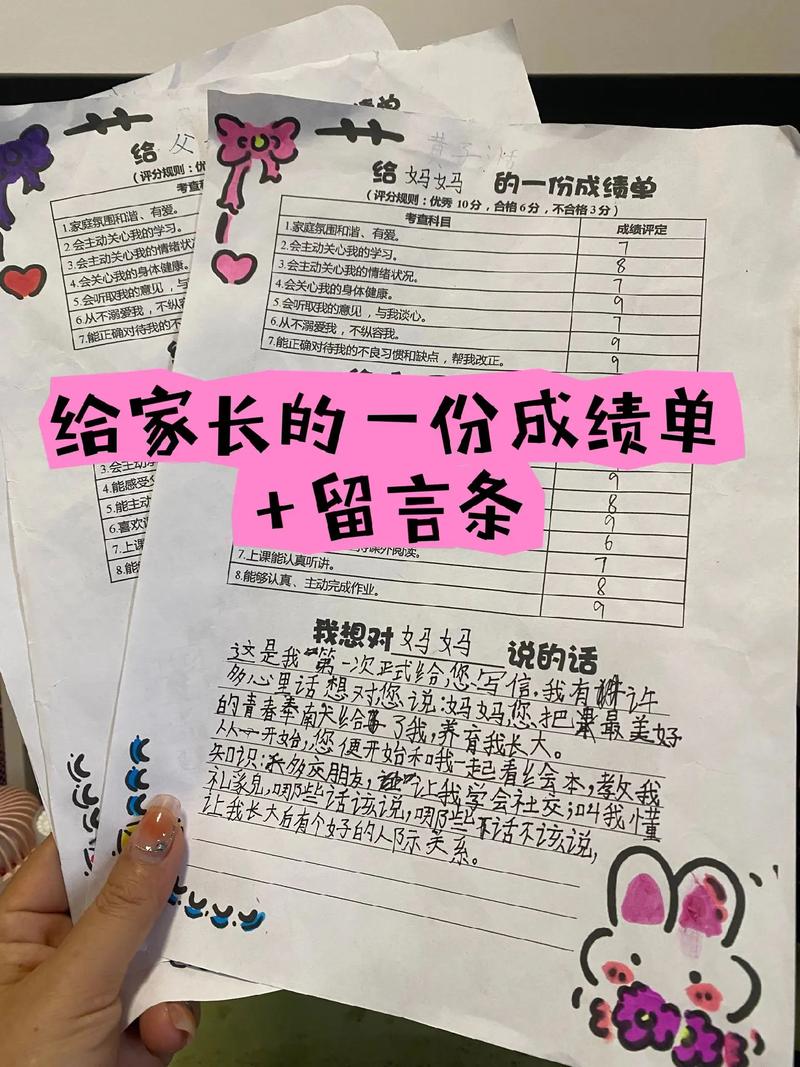 给 父
(评分规则:优
考查科
1.家庭氛围和谐、有爱。
2.会主动关心我的学习。
3.会主动关心我的情绪状况
4.会关心我的身体健康。
5.会听取我的意见,与
6.从不溺爱我,不纵容
7.能正确对待我的不
4.能感受
5.能主动
6.喜欢
7.上课
8.能够
给 妈妈 的一份成绩单
(评分规则:优秀 10分,合格6分,不合格3分)
考查科目 成绩评定
1.家庭氛围和谐、有爱。 7
2.会主动关心我的学习。 8
3.会主动关心我的情绪状况。 7
4.会关心我的身体健康。 9
5.会听取我的意见,与我谈心。 7
6.从不溺爱我,不纵容我。 9
7.能正确对待我的不良习惯和缺点,帮我改正。 9
给家长的一份成绩单
+留言条
9
8
9
课外阅读。 6
7.上课能认真听讲。 7
8.能够认真、主动完成作业。 8
9
我想对 妈妈 说的话
这是我第一次正式给您写信.我有许
多心里话想对您说:妈妈,您把最美好
的青春奉献给了我,养育我长大。
从一开始,您便开始和我一起看绘本,教我
知识;多交朋友,让我学会社交;叫我懂
礼貌,哪些话该说,哪些话不该说,
让我长大后有个好的人际关系。